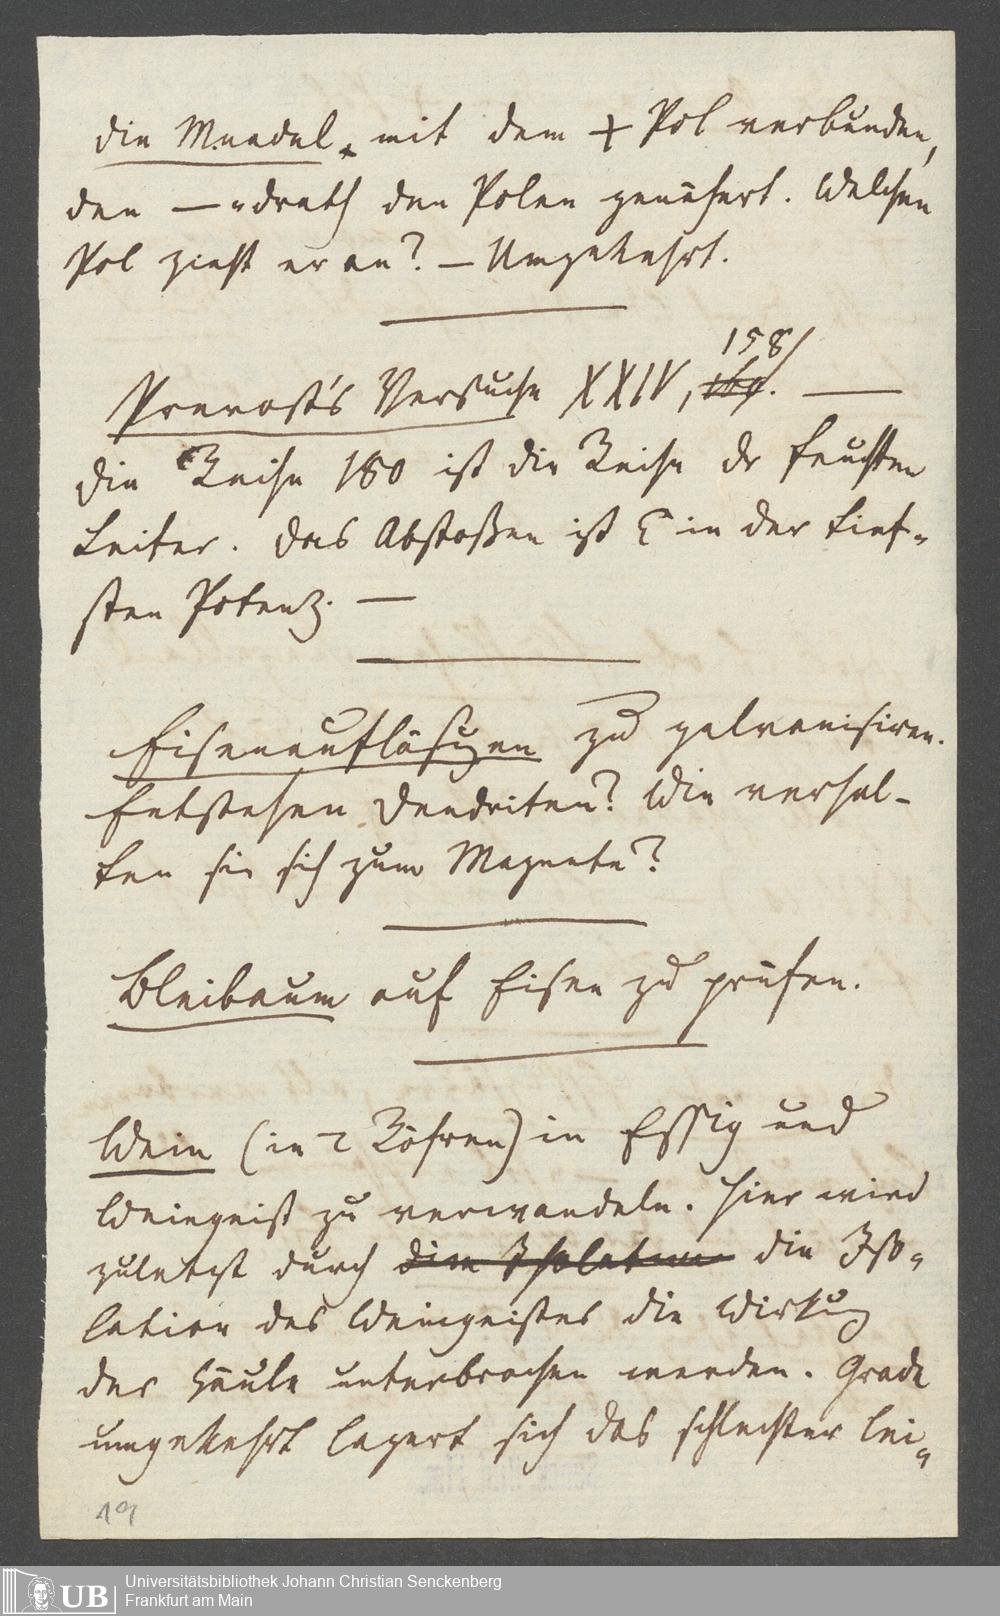 die Nadel, mit dem + Pol verbunden,
den — drath den Polen genähert. Welchen
Pol zieht er an? — Umgekehrt.
158/
Prevost's Versuche XXIV, 160. —
die Reihe 180 ist die Reihe der feuchten
Leiter. Das Abstoßen ist E in der tief-
sten Potenz. —
Eisenauflösungen zu galvanisiren.
Entstehen Dendriten? Wie verhal-
ten sie sich zum Magnete?
Bleibaum auf Eisen zu prüfen.
Wein (in 2 Röhren) in Essig und
Weingeist zu verwandeln. Hier wird
zuletzt durch die Isolation die Iso-
lation des Weingeistes die Wirkung
der Säule unterbrochen werden. Grade
umgekehrt lagert sich das schlechter lei-
19
UB
Universitätsbibliothek Johann Christian Senckenberg
Frankfurt am Main